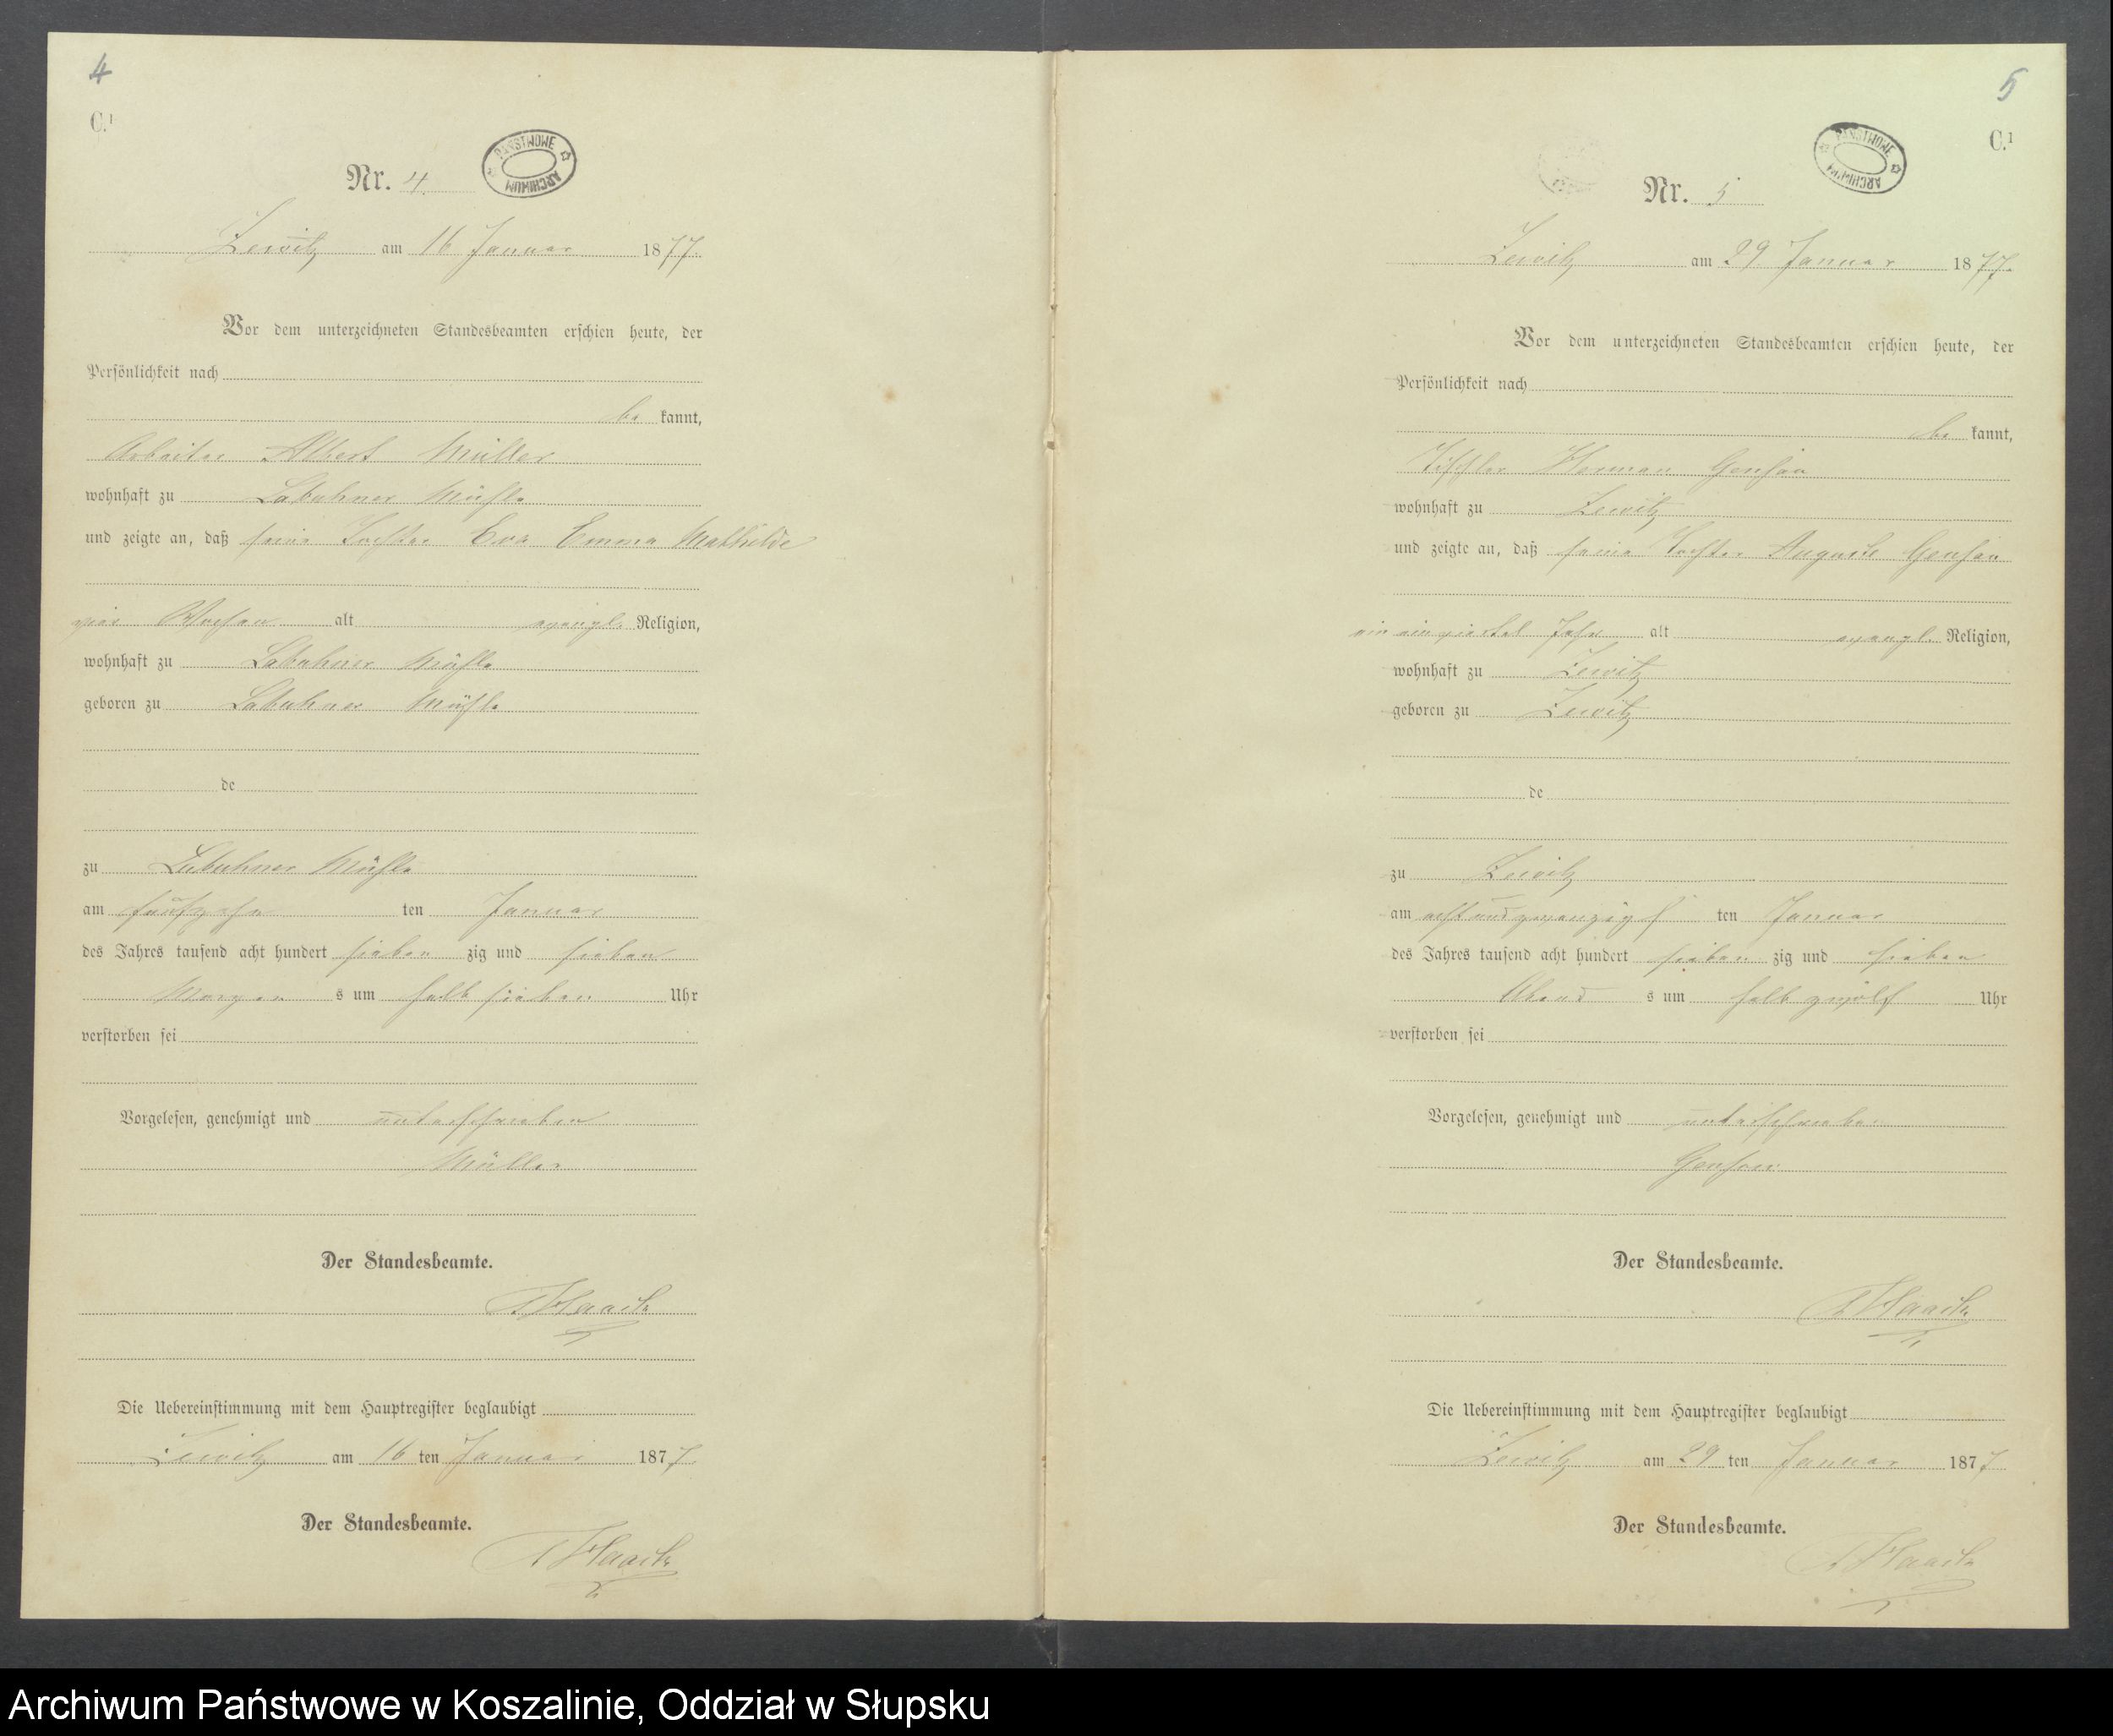 4
C.¹
PAŃSTWOWE ARCHIWUM
Nr. 4.
Zewitz am 16 Januar 1877.
Vor dem unterzeichneten Standesbeamten erschien heute, der
Persönlichkeit nach
be kannt,
Arbeiter Albert Müller
wohnhaft zu Labuhner Mühle
und zeigte an, daß seine Tochter Eva Emma Mathilde
vier Wochen alt evangl. Religion,
wohnhaft zu Labuhner Mühle
geboren zu Labuhner Mühle
de
zu Labuhner Mühle
am fünfzehn ten Januar
des Jahres tausend acht hundert sieben zig und sieben
Morgen s um halb sieben Uhr
verstorben sei
Vorgelesen, genehmigt und unterschrieben
Müller
Der Standesbeamte.
Haack
Die Uebereinstimmung mit dem Hauptregister beglaubigt
Zewitz am 16 ten Januar 1877.
Der Standesbeamte.
Haack
5
C.¹
PAŃSTWOWE ARCHIWUM
Nr. 5
Zewitz am 29 Januar 1877.
Vor dem unterzeichneten Standesbeamten erschien heute, der
Persönlichkeit nach
be kannt,
Tischler Herman
wohnhaft zu Zewitz
und zeigte an, daß seine Tochter Auguste
ein einviertel Jahr alt evangl. Religion,
wohnhaft zu Zewitz
geboren zu Zewitz
de
zu Zewitz
am acht und zwanzigs ten Januar
des Jahres tausend acht hundert sieben zig und sieben
Abend s um halb zwölf Uhr
verstorben sei
Vorgelesen, genehmigt und unterschrieben
Der Standesbeamte.
Haack
Die Uebereinstimmung mit dem Hauptregister beglaubigt
Zewitz am 29 ten Januar 1877
Der Standesbeamte.
Haack
Archiwum Państwowe w Koszalinie, Oddział w Słupsku